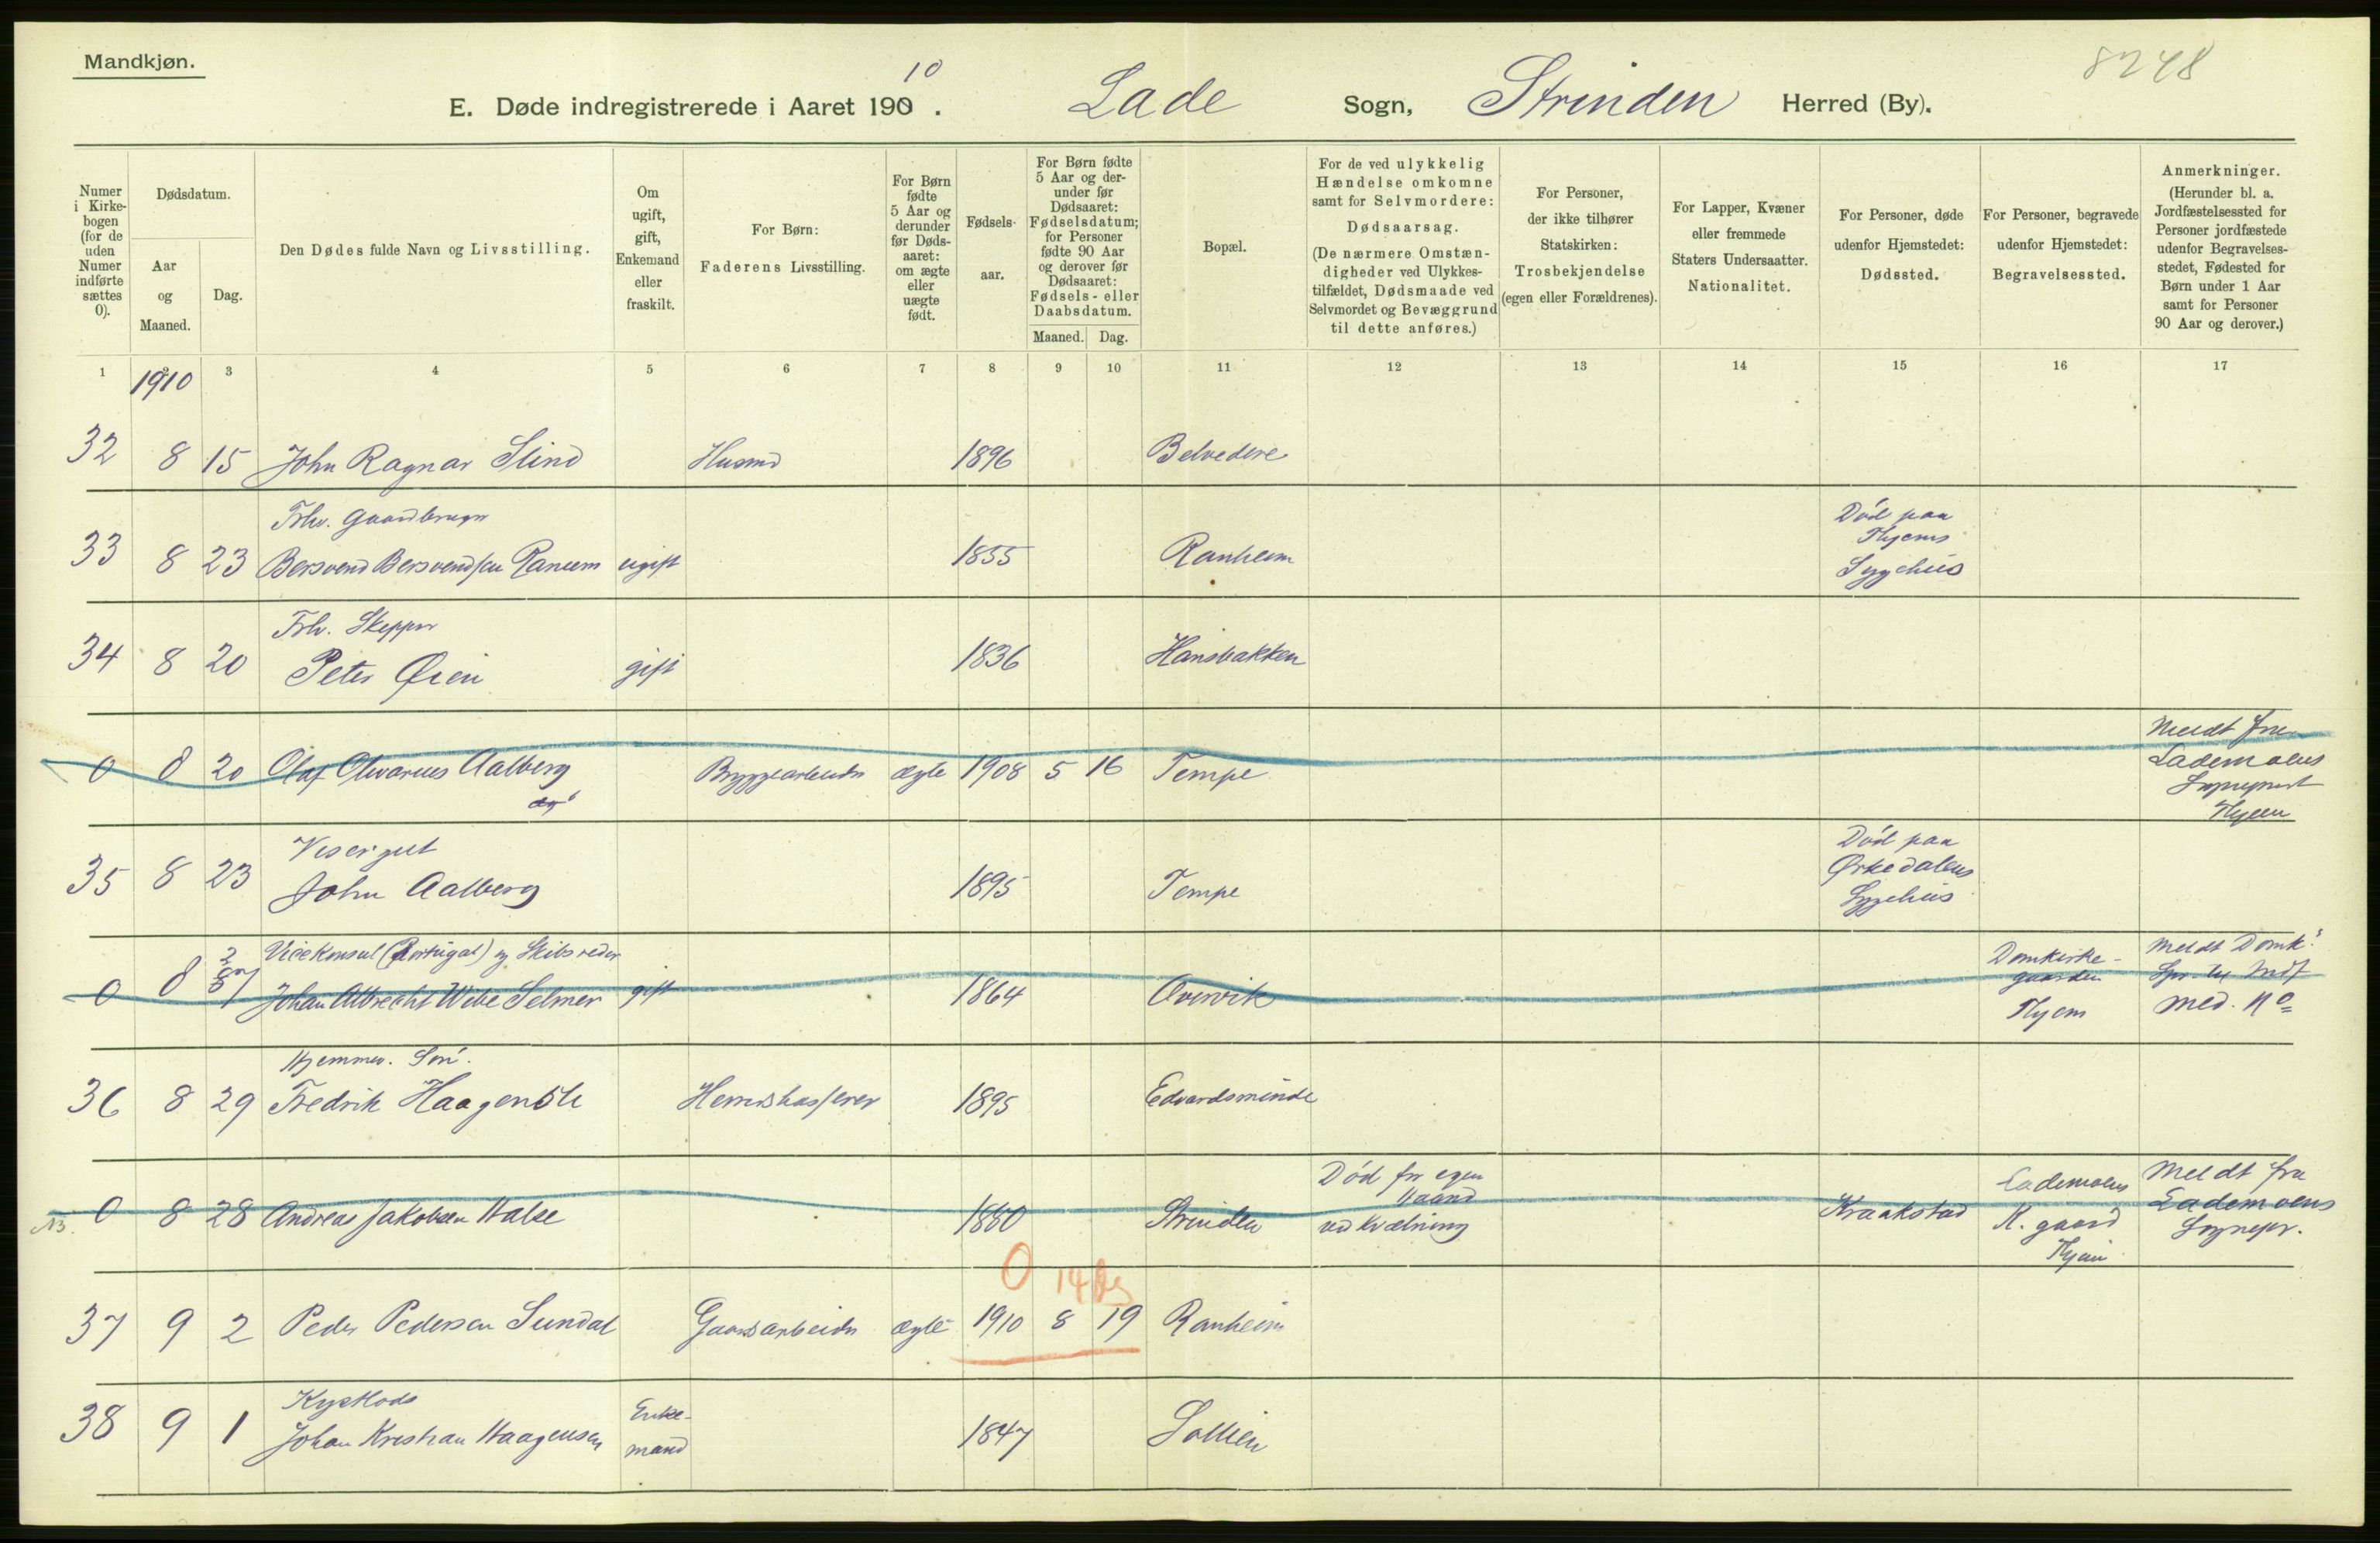 Mandkjøn.
8248
E. Døde indregistrerede i Aaret 1910. Lade Sogn, Strinden Herred (By).
Numer
i Kirke-
bogen
(for de
uden
Numer
indførte
sættes
0).
Dødsdatum.
Aar
og
Maaned.
Dag.
Den Dødes fulde Navn og Livsstilling.
Om
ugift,
gift,
Enkemand
eller
fraskilt.
For Børn:
Faderens Livsstilling.
For Børn
fødte
5 Aar og
derunder
før Døds-
aaret:
om ægte
eller
uægte
født.
Fødsels-
aar.
For Børn fødte
5 Aar og der-
under før
Dødsaaret:
Fødselsdatum;
for Personer
fødte 90 Aar
og derover før
Dødsaaret:
Fødsels- eller
Daabsdatum.
Maaned. Dag.
Bopæl.
For de ved ulykkelig
Hændelse omkomne
samt for Selvmordere:
Dødsaarsag.
(De nærmere Omstæn-
digheder ved Ulykkes-
tilfældet, Dødsmaade ved
Selvmordet og Bevæggrund
til dette anføres.)
For Personer,
der ikke tilhører
Statskirken:
Trosbekjendelse
(egen eller Forældrenes).
For Lapper, Kvæner
eller fremmede
Staters Undersaatter.
Nationalitet.
For Personer, døde
udenfor Hjemstedet:
Dødssted.
For Personer, begravede
udenfor Hjemstedet:
Begravelsessted.
Anmerkninger.
(Herunder bl. a.
Jordfæstelsessted for
Personer jordfæstede
udenfor Begravelses-
stedet, Fødested for
Børn under 1 Aar
samt for Personer
90 Aar og derover.)
1 2 3 4 5 6 7 8 9 10 11 12 13 14 15 16 17
1910
32 8 15 John Ragnar Slind Husmd 1896 Belvedere
Frhv. Gaardbruger
33 8 23 Bersvend Bersvendsen Raneem ugift 1855 Ranheim
Død paa
Thjems
Sygehus
Frhv. Skepper
34 8 20 Peter Øien gift 1836 Hansbakken
0 8 20 Olaf Olivarius Aalberg Bryggearbeider ægte 1908 5 16 Tempe
Meldt fra
Lademoens
Sogneprest
Thjem
Visergut
35 8 23 John Aalberg 1895 Tempe
Død paa
Ørkedalens
Sygehus
Vicekonsul (Portugal) og Skibsreder
0 8 Johan Albrecht Wibe Selmer gift 1864 Overvik
Domkirke-
gaarden
Thjem
Meldt Domk.
med. No
Hjemmev. Søn.
36 8 29 Fredrik Haagensli Herredskasserer 1895 Edvardsminde
NB. 0 8 28 Andreas Jakobsen Halse 1880 Strinden
Død for egen
Haand
ved Kvælning
Kraakstad
Lademoens
K. gaard
Thjem
Meldt fra
Lademoens
Sognepr.
0 14 ds
37 9 2 Peder Pedersen Sundal Gaardsarbeider ægte 1910 8 19 Ranheim
Kystlods
38 9 1 Johan Kristian Haagensen Enke-
mand 1847 Sollien